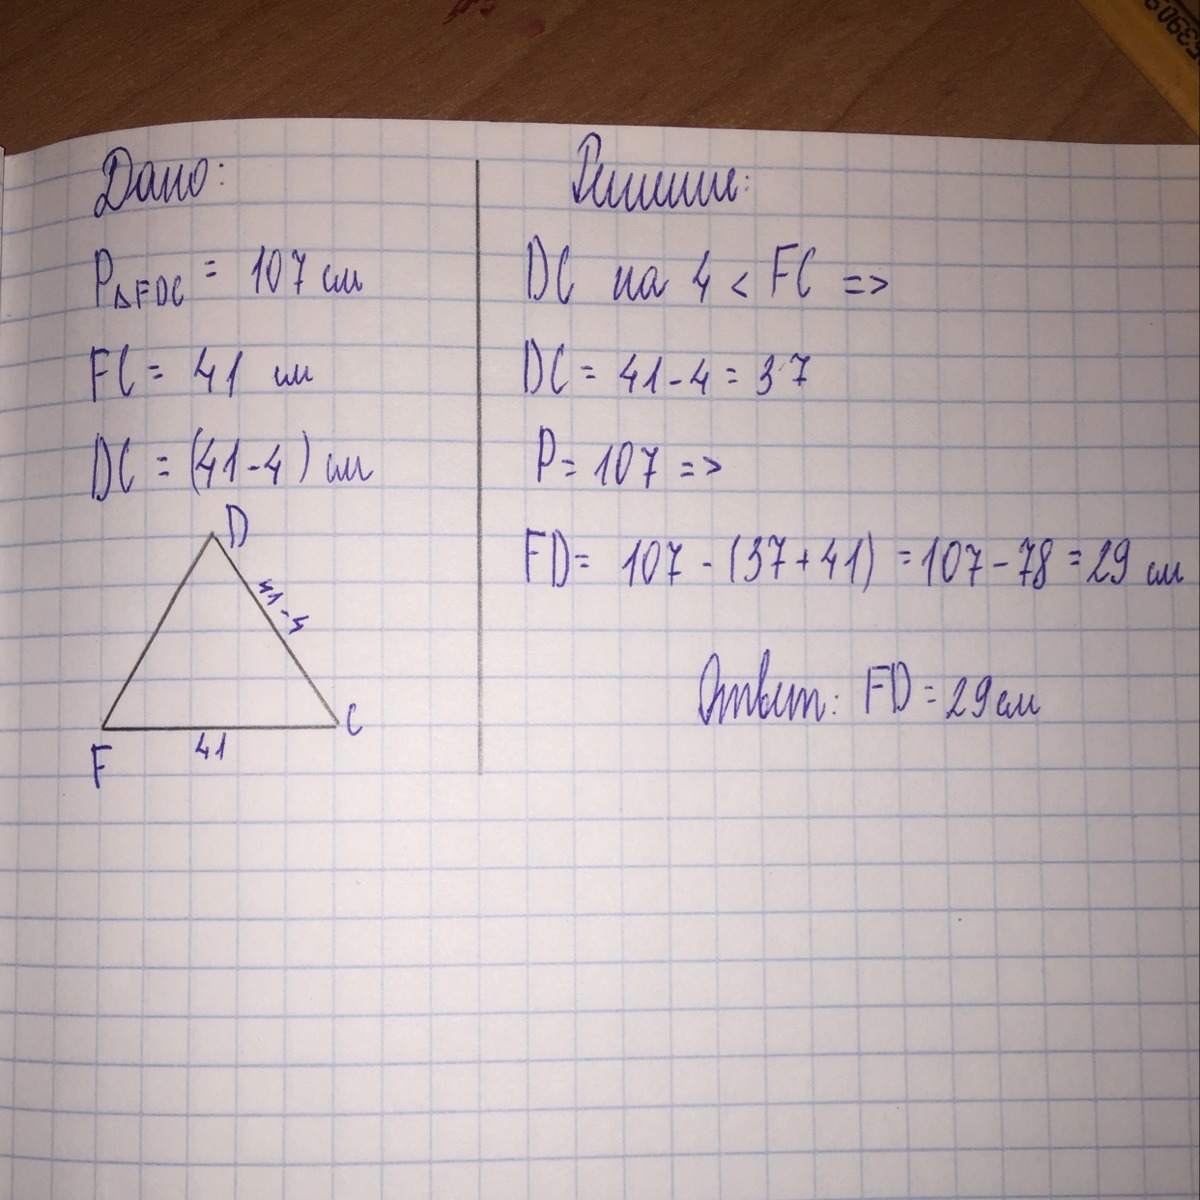 Дано:
P△FDC = 107 см
FC = 41 см
DC = (41-4) см
D
41-4
F
41
C
Решение:
DC на 4 < FC =>
DC = 41-4 = 37
P = 107 =>
FD = 107 - (37+41) = 107-78 = 29 см
Ответ: FD = 29 см